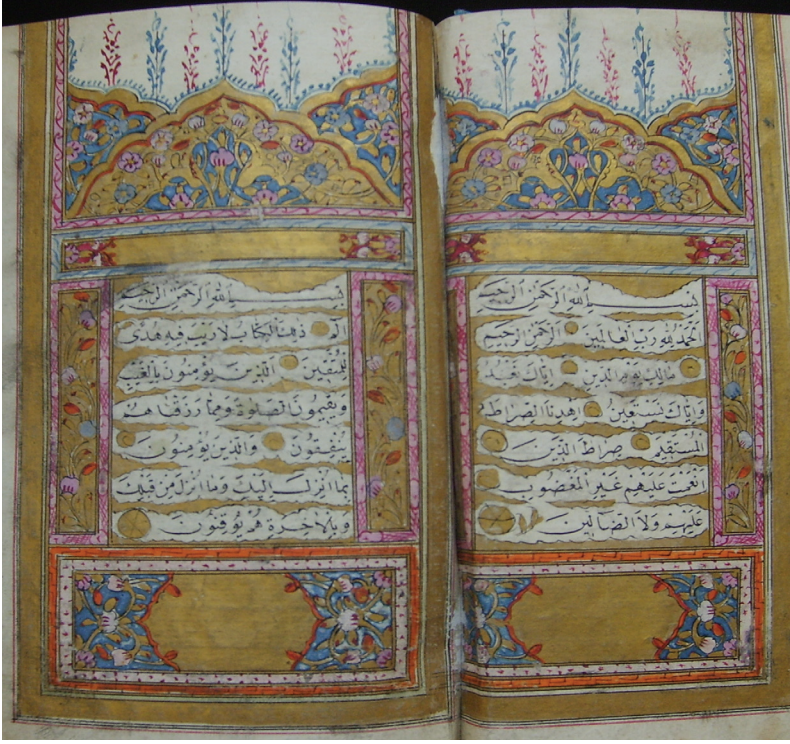 بسم الله الرحمن الرحيم
الحمد لله رب العالمين الرحمن الرحيم
مالك يوم الدين اياك نعبد
واياك نستعين اهدنا الصراط
المستقيم صراط الذين
انعمت عليهم غير المغضوب
عليهم ولا الضالين
بسم الله الرحمن الرحيم
الم ذلك الكتاب لا ريب فيه هدى
للمتقين الذين يؤمنون بالغيب
ويقيمون الصلوة ومما رزقناهم
ينفقون والذين يؤمنون
بما انزل اليك وما انزل من قبلك
وبالاخرة هم يوقنون